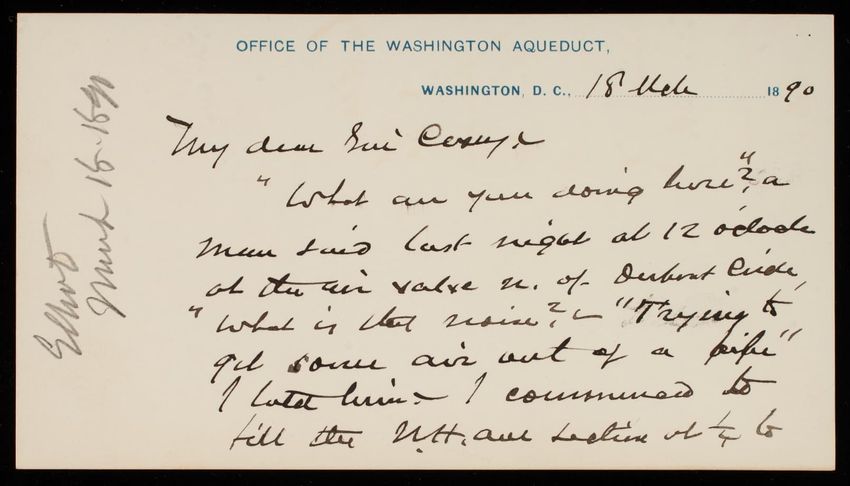 OFFICE OF THE WASHINGTON AQUEDUCT,
WASHINGTON, D. C., 18 Mch 1890
My dear Gen Casey:
"What are you doing here"? a
man said last night at 12 o'clock
at the air valve n. of Dupont Circle,
"What is that noise? - "Trying to
get some air out of a pipe"
I told him - I commenced to
fill the N.H. ave section at ¼ to
Elliott
March 18-1890